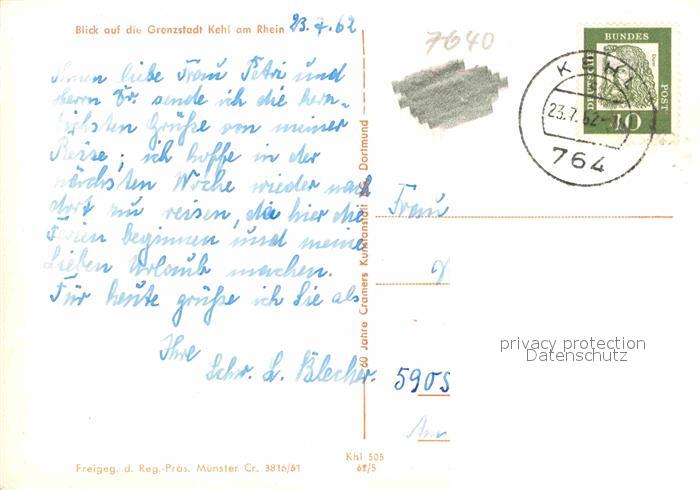 Blick auf die Grenzstadt Kehl am Rhein 23.7.62
Ihnen liebe Frau Petri und
Herrn Dr. sende ich die herz-
lichsten Grüße von meiner
Reise; ich hoffe in der
nächsten Woche wieder nach
dort zu reisen, da hier die
Ferien beginnen und meine
Lieben Urlaub machen.
Für heute grüße ich Sie als
Ihre
Schw. L. Blecher.
Freigeg. d. Reg.-Präs. Münster Cr. 3816/61
Khl 505
62/5
60 Jahre Cramers Kunstanstalt Dortmund
7640
KEHL
23.7.62
764
DEUTSCHE
BUNDES
POST
10
Frau
privacy protection
Datenschutz
5905
Am